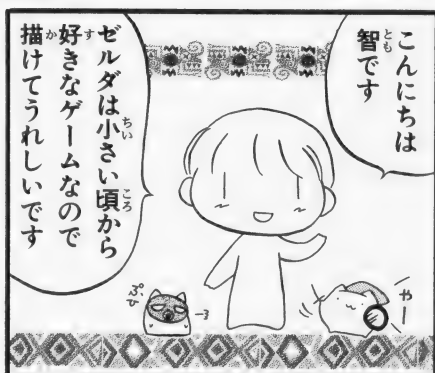 こんにちは
智です
ゼルダは小さい頃から
好きなゲームなので
描けてうれしいです
ぷひ
やー